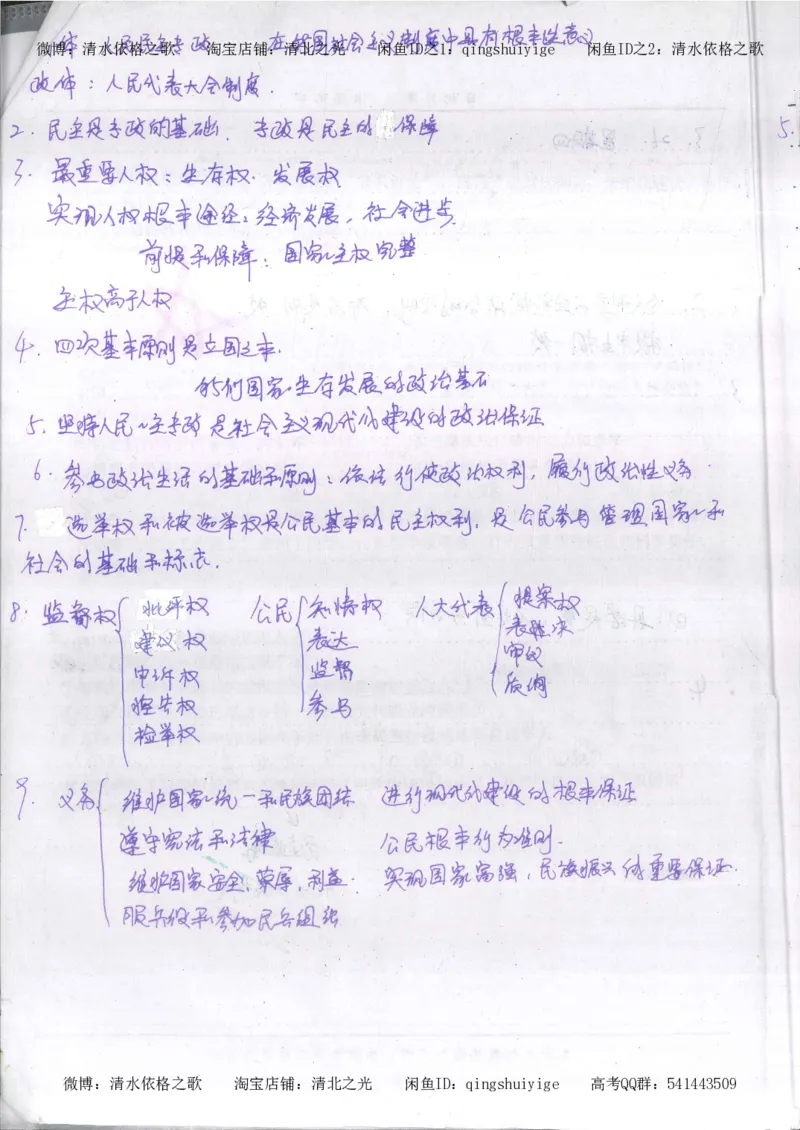 微博：清水依格之歌 淘宝店铺：清北之光 闲鱼ID之1：qingshuiyige 闲鱼ID之2：清水依格之歌
政体：人民代表大会制度.
2. 民主是专政的基础. 专政是民主的保障
5.
3. 最重要人权：生存权. 发展权
实现人权根本途径：经济发展，社会进步
前提和保障：国家主权完整
主权高于人权
4. 四项基本原则是立国之本.
我们国家生存发展的政治基石
5. 坚持人民民主专政是社会主义现代化建设的政治保证
6. 参与政治生活的基础和原则：依法行使政治权利，履行政治性义务.
7. 选举权和被选举权是公民基本的民主权利，是公民参与管理国家和
社会的基础和标志.
8. 监督权 批评权 公民 知情权 人大代表 提案权
建议权 表达 表决
申诉权 监督 审议
控告权 参与 质询
检举权
9. 义务 维护国家统一和民族团结 进行现代化建设的根本保证
遵守宪法和法律 公民根本行为准则.
维护国家安全、荣辱、利益. 实现国家富强，民族振兴的重要保证.
服兵役和参加民兵组织
微博：清水依格之歌 淘宝店铺：清北之光 闲鱼ID：qingshuiyige 高考QQ群：541443509